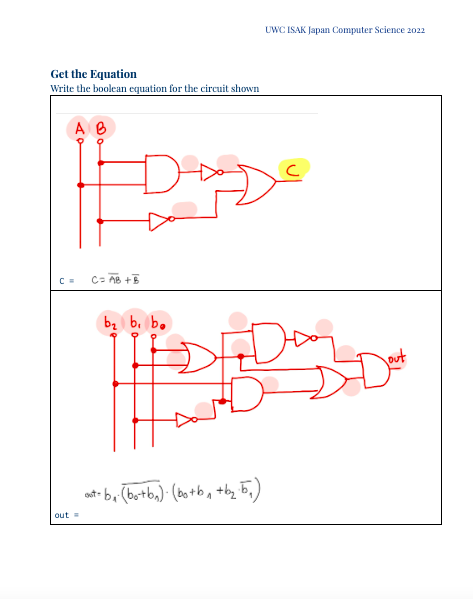 UWC ISAK Japan Computer Science 2022
Get the Equation
Write the boolean equation for the circuit shown
A B
C
C = C = A̅B̅ + B̅
b₂ b₁ b₀
out
out = b₁·(b̅₀̅+̅b̅₁̅)·(b₀+b₁+b₂·b̅₁)
out =